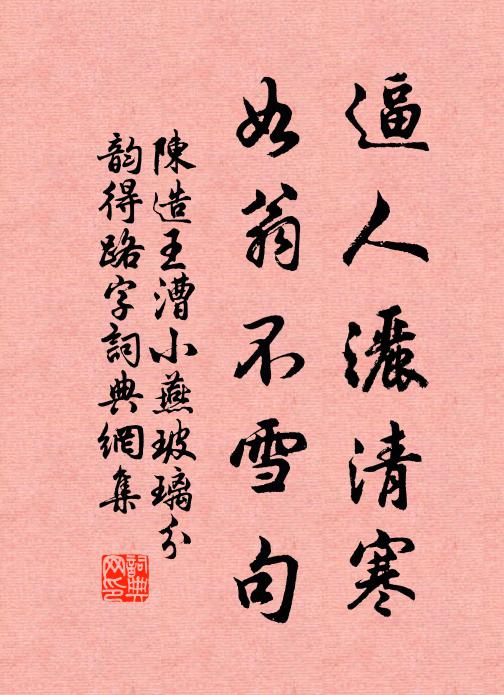 逼人灑清寒
如翁不雪句
陳造王漕小燕玻璃分
韵得路字詞典網集
詞典网印